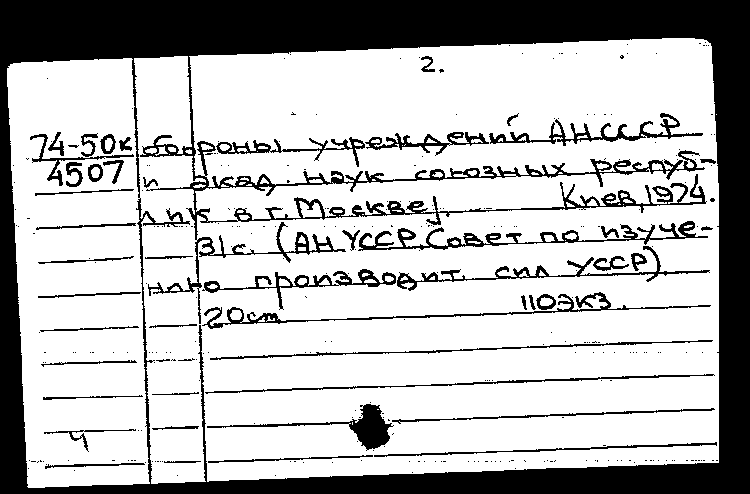 2.
74-50к обороны учреждений АНСССР
4507 и акад. наук союзных респуб-
лик в г. Москве]. Киев, 1974.
31с. (АН УССР. Совет по изуче-
нию производит. сил УССР).
20см 110экз.
Ч